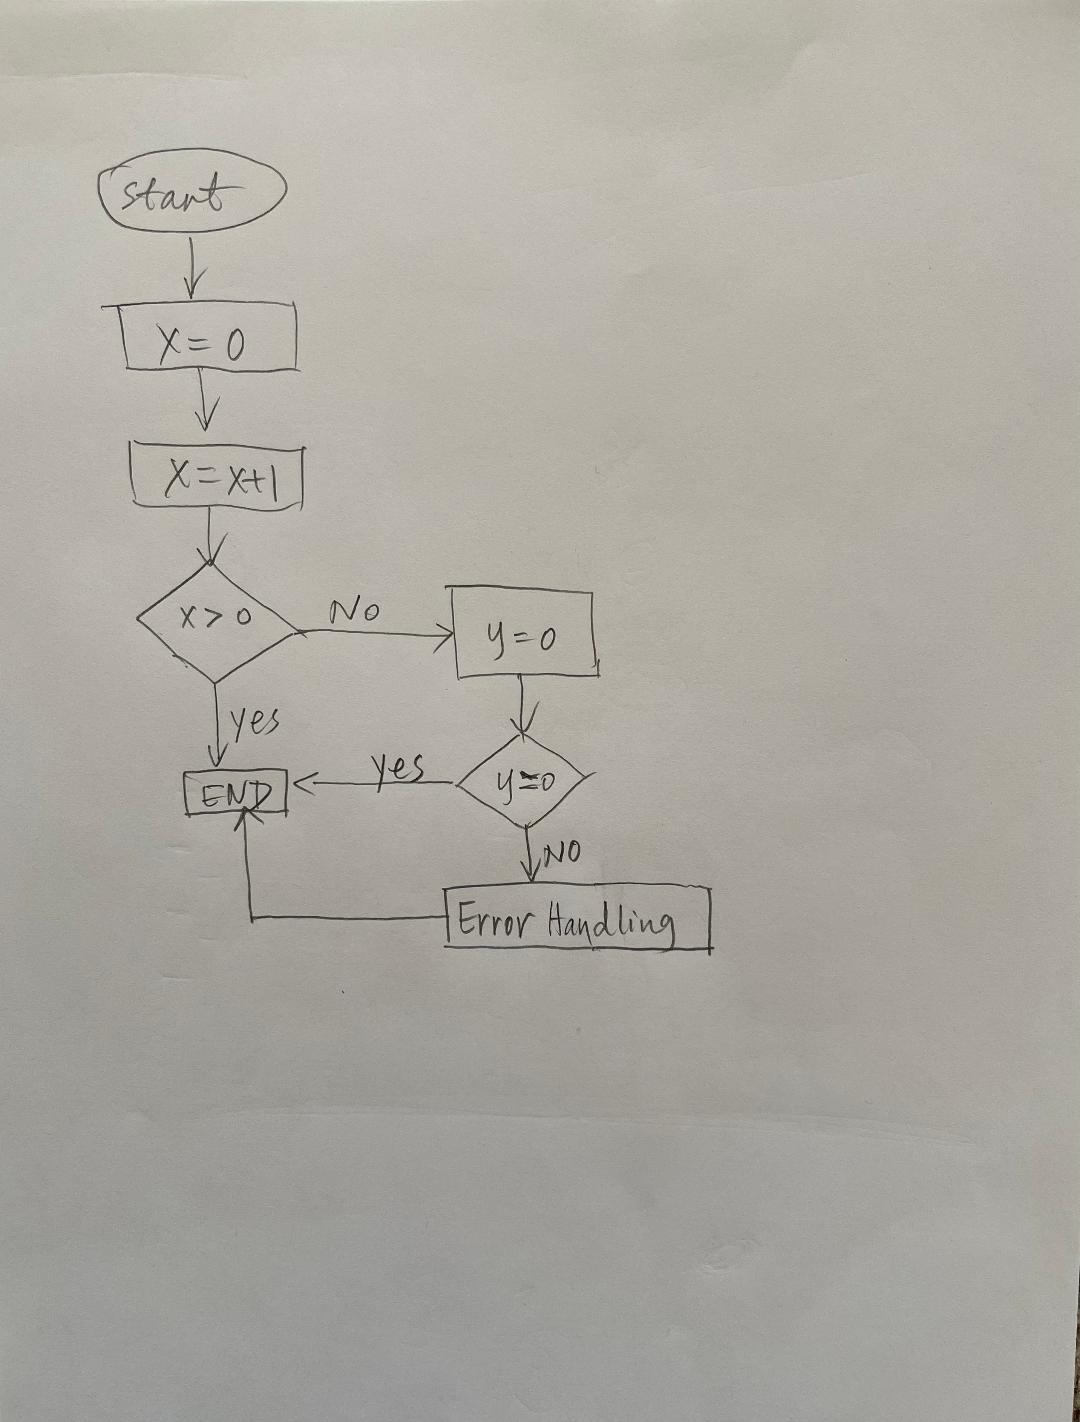 start
X = 0
X = X+1
X > 0
NO
y = 0
yes
yes
END
NO
Error Handling